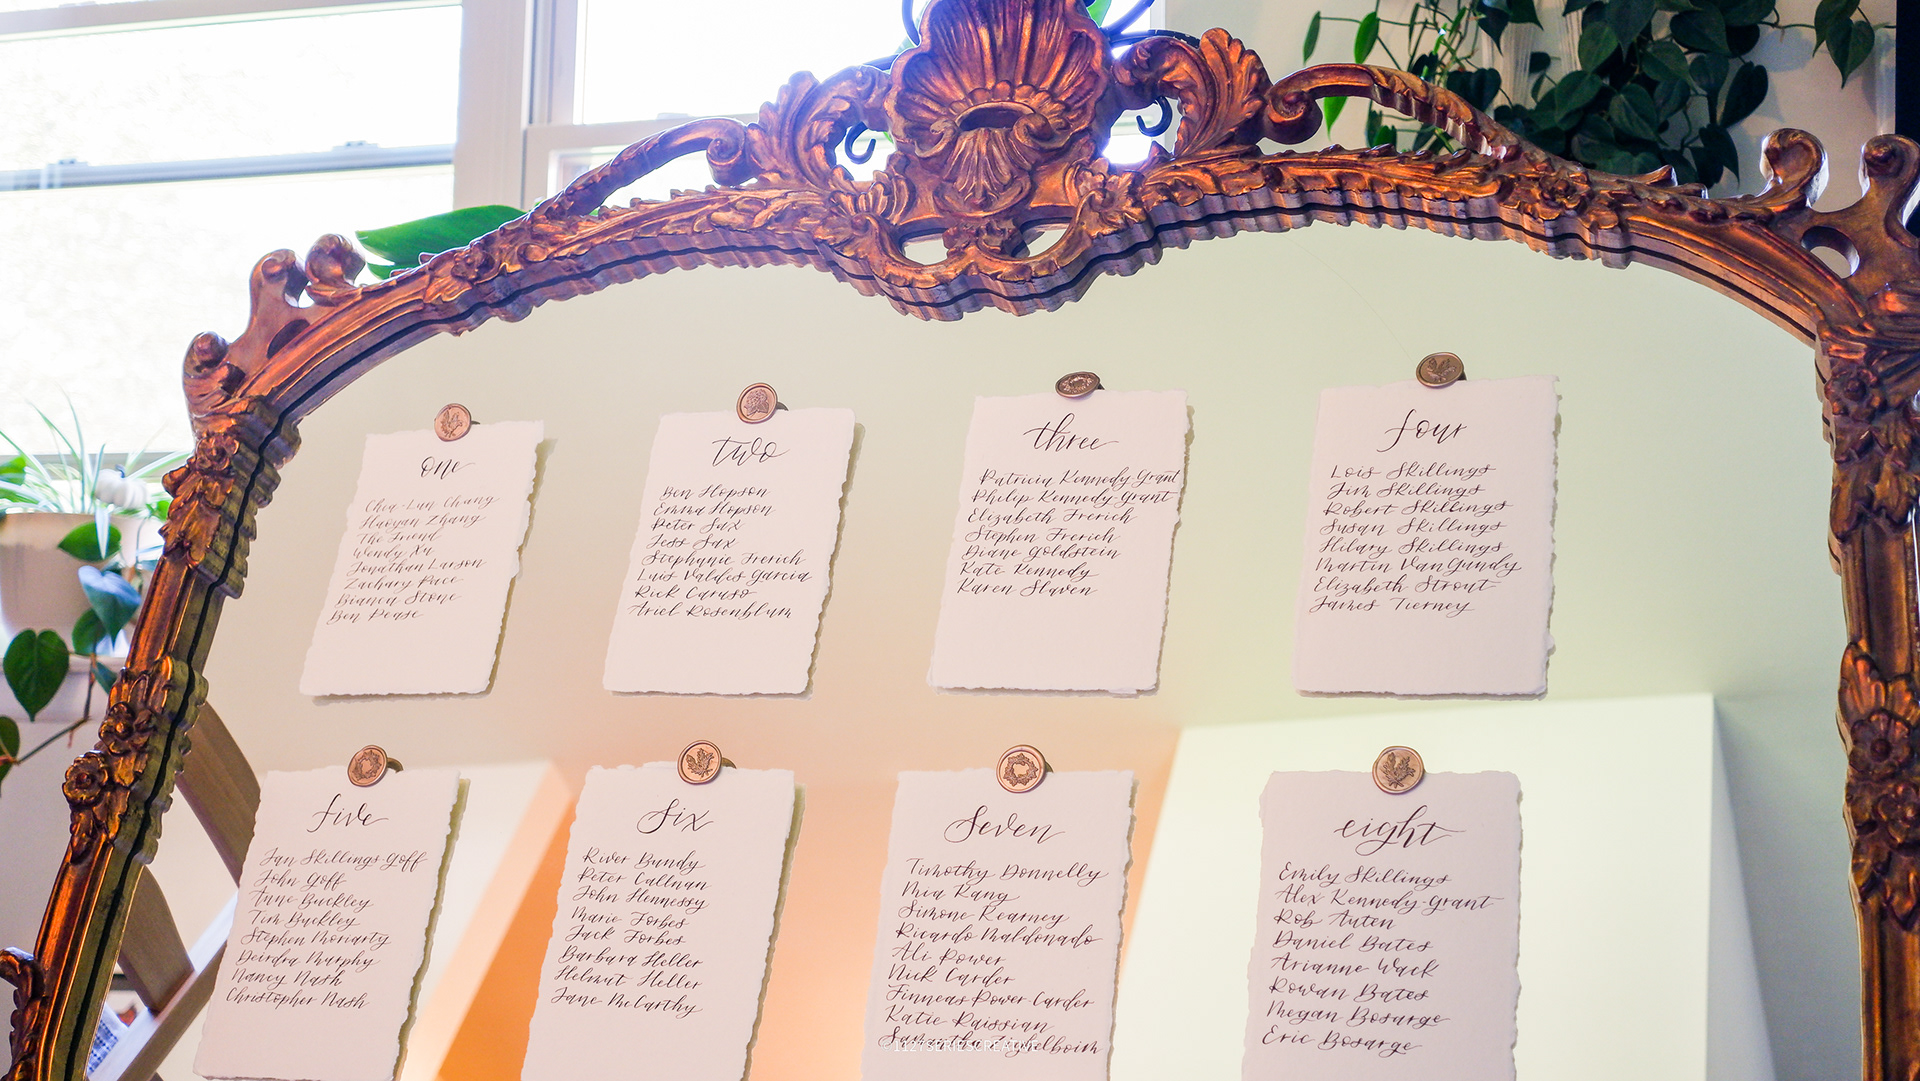 one
Chia-Lun Chang
Haoyan Zhang
The Friend
Wendy Xu
Jonathan Larson
Zachary Pace
Bianca Stone
Ben Pease
two
Ben Hopson
Emma Hopson
Peter Sax
Jess Sax
Stephanie Frerich
Luis Valdes Garcia
Rick Caruso
Ariel Rosenblum
three
Patricia Kennedy-Grant
Philip Kennedy-Grant
Elizabeth Frerich
Stephen Frerich
Diane Goldstein
Kate Kennedy
Karen Slaven
four
Lois Skillings
Jim Skillings
Robert Skillings
Susan Skillings
Hilary Skillings
Martin VanGundy
Elizabeth Strout
James Tierney
five
Jan Skillings-Goff
John Goff
Anne Buckley
Tim Buckley
Stephen Moriarty
Deirdra Murphy
Nancy Nash
Christopher Nash
six
River Bundy
Peter Callnan
John Hennessy
Marie Forbes
Jack Forbes
Barbara Heller
Helmut Heller
Jane McCarthy
seven
Timothy Donnelly
Mia Kang
Simone Kearney
Ricardo Maldonado
Ali Power
Nick Carder
Finneas Power-Carder
Katie Raissian
Samantha Zighelboim
eight
Emily Skillings
Alex Kennedy-Grant
Rob Auten
Daniel Bates
Arianne Wack
Rowan Bates
Megan Bosarge
Eric Bosarge
©1127SERIESCREATIVE